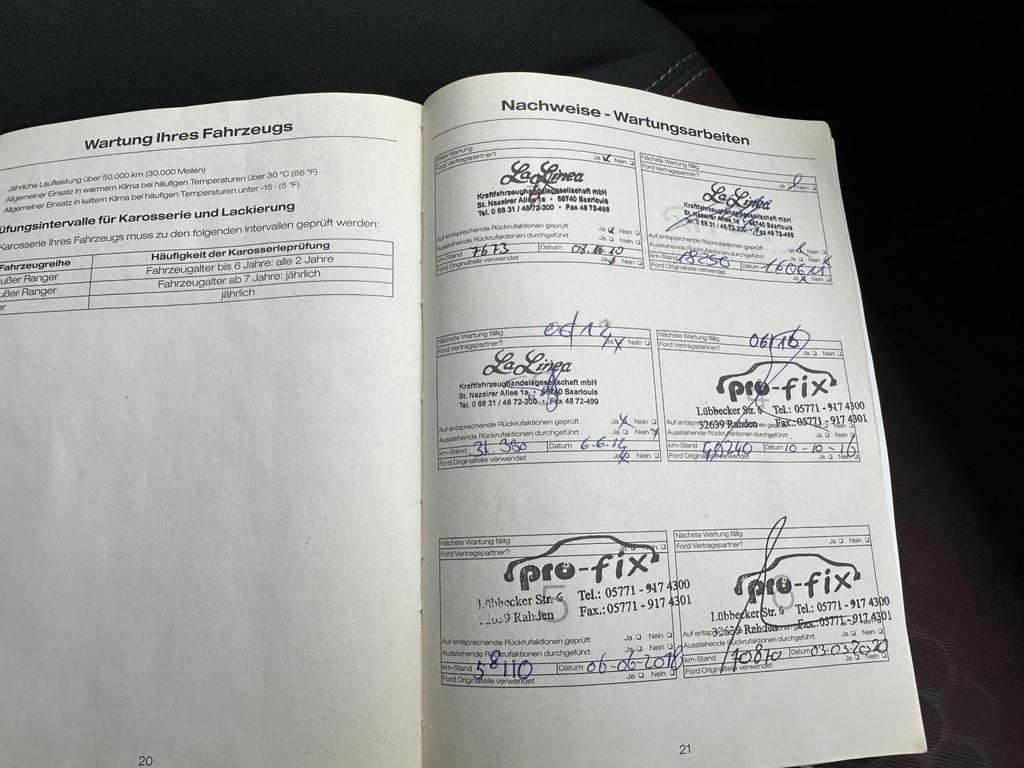 Wartung Ihres Fahrzeugs
Jährliche Laufleistung über 50.000 km (30.000 Meilen)
Allgemeiner Einsatz in warmem Klima bei häufigen Temperaturen über 30 °C (86 °F)
Allgemeiner Einsatz in kaltem Klima bei häufigen Temperaturen unter -15 (5 °F)
üfungsintervalle für Karosserie und Lackierung
Karosserie Ihres Fahrzeugs muss zu den folgenden Intervallen geprüft werden:
Fahrzeugreihe Häufigkeit der Karosserieprüfung
ußer Ranger Fahrzeugalter bis 6 Jahre: alle 2 Jahre
ußer Ranger Fahrzeugalter ab 7 Jahre: jährlich
er jährlich
20
Nachweise - Wartungsarbeiten
Erste Wartung
Ford Vertragspartner? Ja Nein
La Linea
Kraftfahrzeughandelsgesellschaft mbH
St. Nazairer Allee 1a · 66740 Saarlouis
Tel. 0 68 31 / 48 72-200 · Fax 48 72-499
Auf entsprechende Rückrufaktionen geprüft Ja Nein
Ausstehende Rückrufaktionen durchgeführt Ja Nein
km-Stand 7673 Datum
Ford Originalteile verwendet Ja Nein
Nächste Wartung fällig
Ford Vertragspartner? Ja Nein
La Linea
Kraftfahrzeughandelsgesellschaft mbH
St. Nazairer Allee 1a · 66740 Saarlouis
Tel. 0 68 31 / 48 72-200 · Fax 48 72-499
Auf entsprechende Rückrufaktionen geprüft Ja Nein
Ausstehende Rückrufaktionen durchgeführt Ja Nein
km-Stand 18256 Datum
Ford Originalteile verwendet Ja Nein
Nächste Wartung fällig
Ford Vertragspartner? Ja Nein
La Linea
Kraftfahrzeughandelsgesellschaft mbH
St. Nazairer Allee 1a · 66740 Saarlouis
Tel. 0 68 31 / 48 72-200 · Fax 48 72-499
Auf entsprechende Rückrufaktionen geprüft Ja Nein
Ausstehende Rückrufaktionen durchgeführt Ja Nein
km-Stand 31.380 Datum
Ford Originalteile verwendet Ja Nein
Nächste Wartung fällig 06/16
Ford Vertragspartner? Ja Nein
pro-fix
Lübbecker Str. 6 Tel.: 05771 - 917 4300
32639 Rahden Fax.: 05771 - 917 4301
Ausstehende Rückrufaktionen durchgeführt Ja Nein
km-Stand Datum 10-10-16
Ford Originalteile verwendet Ja Nein
Nächste Wartung fällig
Ford Vertragspartner? Ja Nein
pro-fix
5
Lübbecker Str. 6 Tel.: 05771 - 917 4300
32639 Rahden Fax.: 05771 - 917 4301
Auf entsprechende Rückrufaktionen geprüft Ja Nein
Ausstehende Rückrufaktionen durchgeführt Ja Nein
km-Stand 58110 Datum 06-06-2018
Ford Originalteile verwendet Ja Nein
Nächste Wartung fällig
Ford Vertragspartner? Ja Nein
pro-fix
6
Lübbecker Str. 6 Tel.: 05771 - 917 4300
32639 Rahden Fax.: 05771 - 917 4301
Ausstehende Rückrufaktionen durchgeführt Ja Nein
km-Stand 70870 Datum 03-03-2020
Ford Originalteile verwendet Ja Nein
21